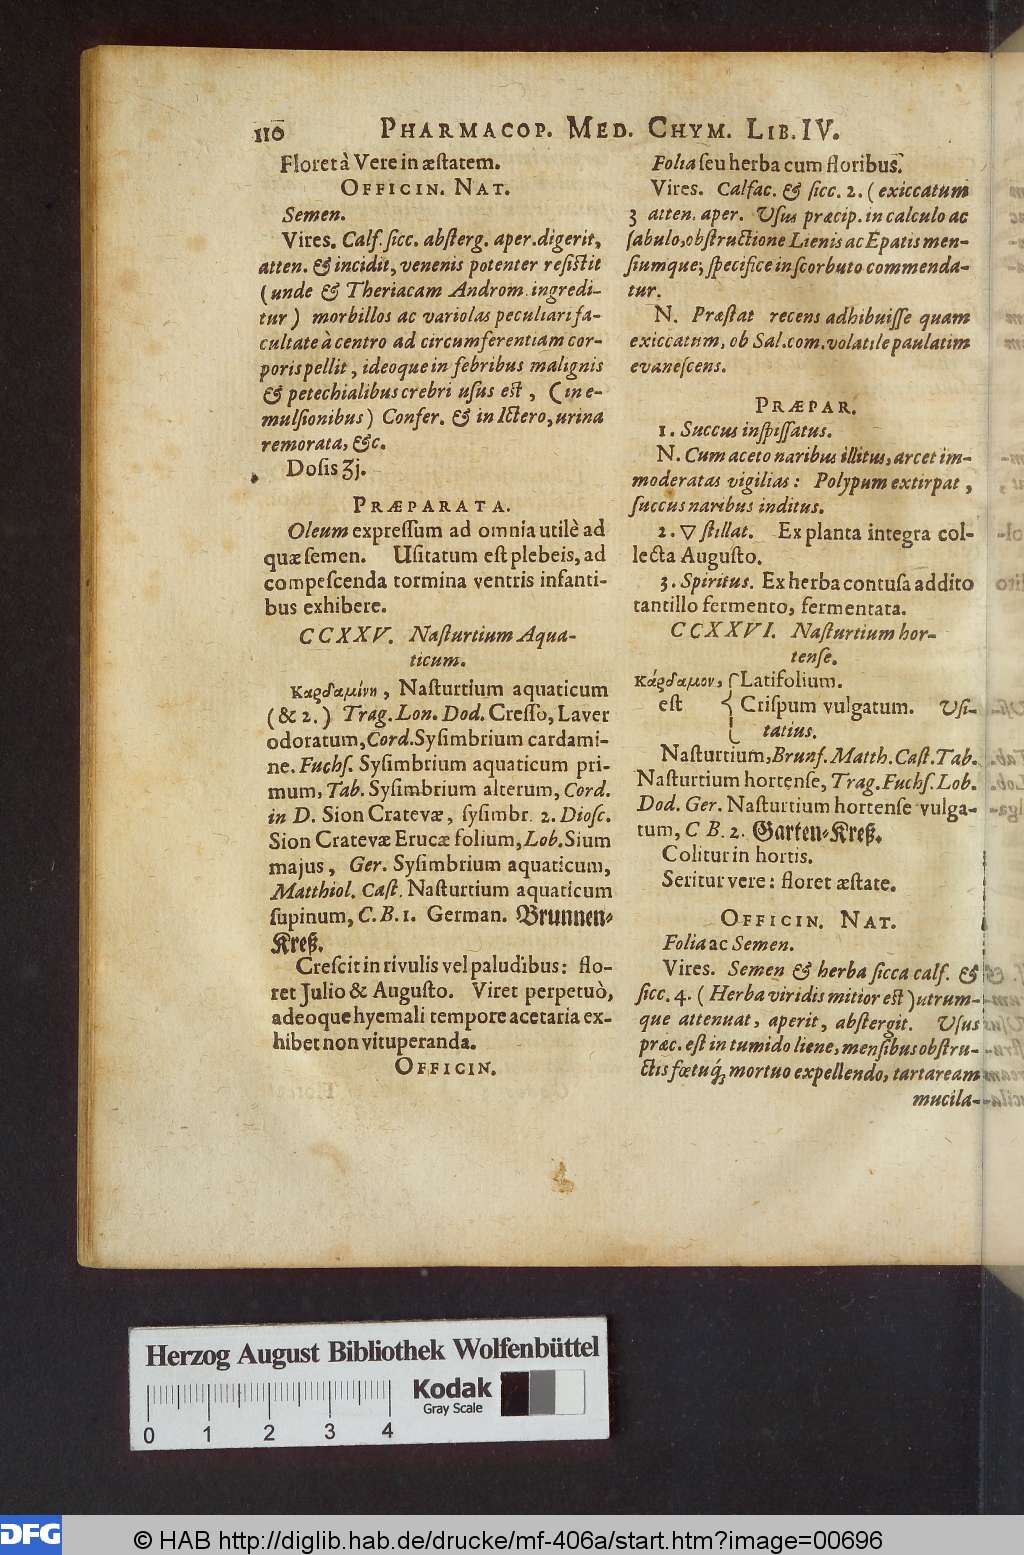 110 PHARMACOP. MED. CHYM. LIB. IV.
Floret à Vere in æstatem.
OFFICIN. NAT.
Semen.
Vires. Calf. sicc. absterg. aper. digerit,
atten. & incidit, venenis potenter resistit
(unde & Theriacam Androm. ingredi-
tur) morbillos ac variolas peculiari fa-
cultate à centro ad circumferentiam cor-
poris pellit, ideoque in febribus malignis
& petechialibus crebri usus est, (in e-
mulsionibus) Confer. & in Ictero, urina
remorata, &c.
Dosis ʒj.
PRÆPARATA.
Oleum expressum ad omnia utilè ad
quæ semen. Usitatum est plebeis, ad
compescenda tormina ventris infanti-
bus exhibere.
CCXXV. Nasturtium Aqua-
ticum.
Καρδαμίνη, Nasturtium aquaticum
(& 2.) Trag. Lon. Dod. Cresso, Laver
odoratum, Cord. Sysimbrium cardami-
ne. Fuchs. Sysimbrium aquaticum pri-
mum, Tab. Sysimbrium alterum, Cord.
in D. Sion Cratevæ, sysimbr. 2. Diosc.
Sion Cratevæ Erucæ folium, Lob. Sium
majus, Ger. Sysimbrium aquaticum,
Matthiol. Cast. Nasturtium aquaticum
supinum, C. B. 1. German. Brunnen-
Kreß.
Crescit in rivulis vel paludibus: flo-
ret Julio & Augusto. Viret perpetuò,
adeoque hyemali tempore acetaria ex-
hibet non vituperanda.
OFFICIN.
Folia seu herba cum floribus.
Vires. Calfac. & sicc. 2. (exiccatum
3 atten. aper. Usus præcip. in calculo ac
sabulo, obstructione Lienis ac Epatis men-
siumque; specifice in scorbuto commenda-
tur.
N. Præstat recens adhibuisse quam
exiccatum, ob Sal. com. volatile paulatim
evanescens.
PRÆPAR.
1. Succus inspissatus.
N. Cum aceto naribus illitus, arcet im-
moderatas vigilias: Polypum extirpat,
succus naribus inditus.
2. ▽ stillat. Ex planta integra col-
lecta Augusto.
3. Spiritus. Ex herba contusa addito
tantillo fermento, fermentata.
CCXXVI. Nasturtium hor-
tense.
Κάρδαμον, { Latifolium.
est { Crispum vulgatum. Usi-
tatius.
Nasturtium, Brunf. Matth. Cast. Tab.
Nasturtium hortense, Trag. Fuchs. Lob.
Dod. Ger. Nasturtium hortense vulga-
tum, C B. 2. Garten-Kreß.
Colitur in hortis.
Seritur vere: floret æstate.
OFFICIN. NAT.
Folia ac Semen.
Vires. Semen & herba sicca calf. &
sicc. 4. (Herba viridis mitior est) utrum-
que attenuat, aperit, abstergit. Usus
præc. est in tumido liene, mensibus obstru-
ctis fœtuq́; mortuo expellendo, tartaream
mucila-
Herzog August Bibliothek Wolfenbüttel
Kodak
Gray Scale
0 1 2 3 4
DFG
© HAB http://diglib.hab.de/drucke/mf-406a/start.htm?image=00696